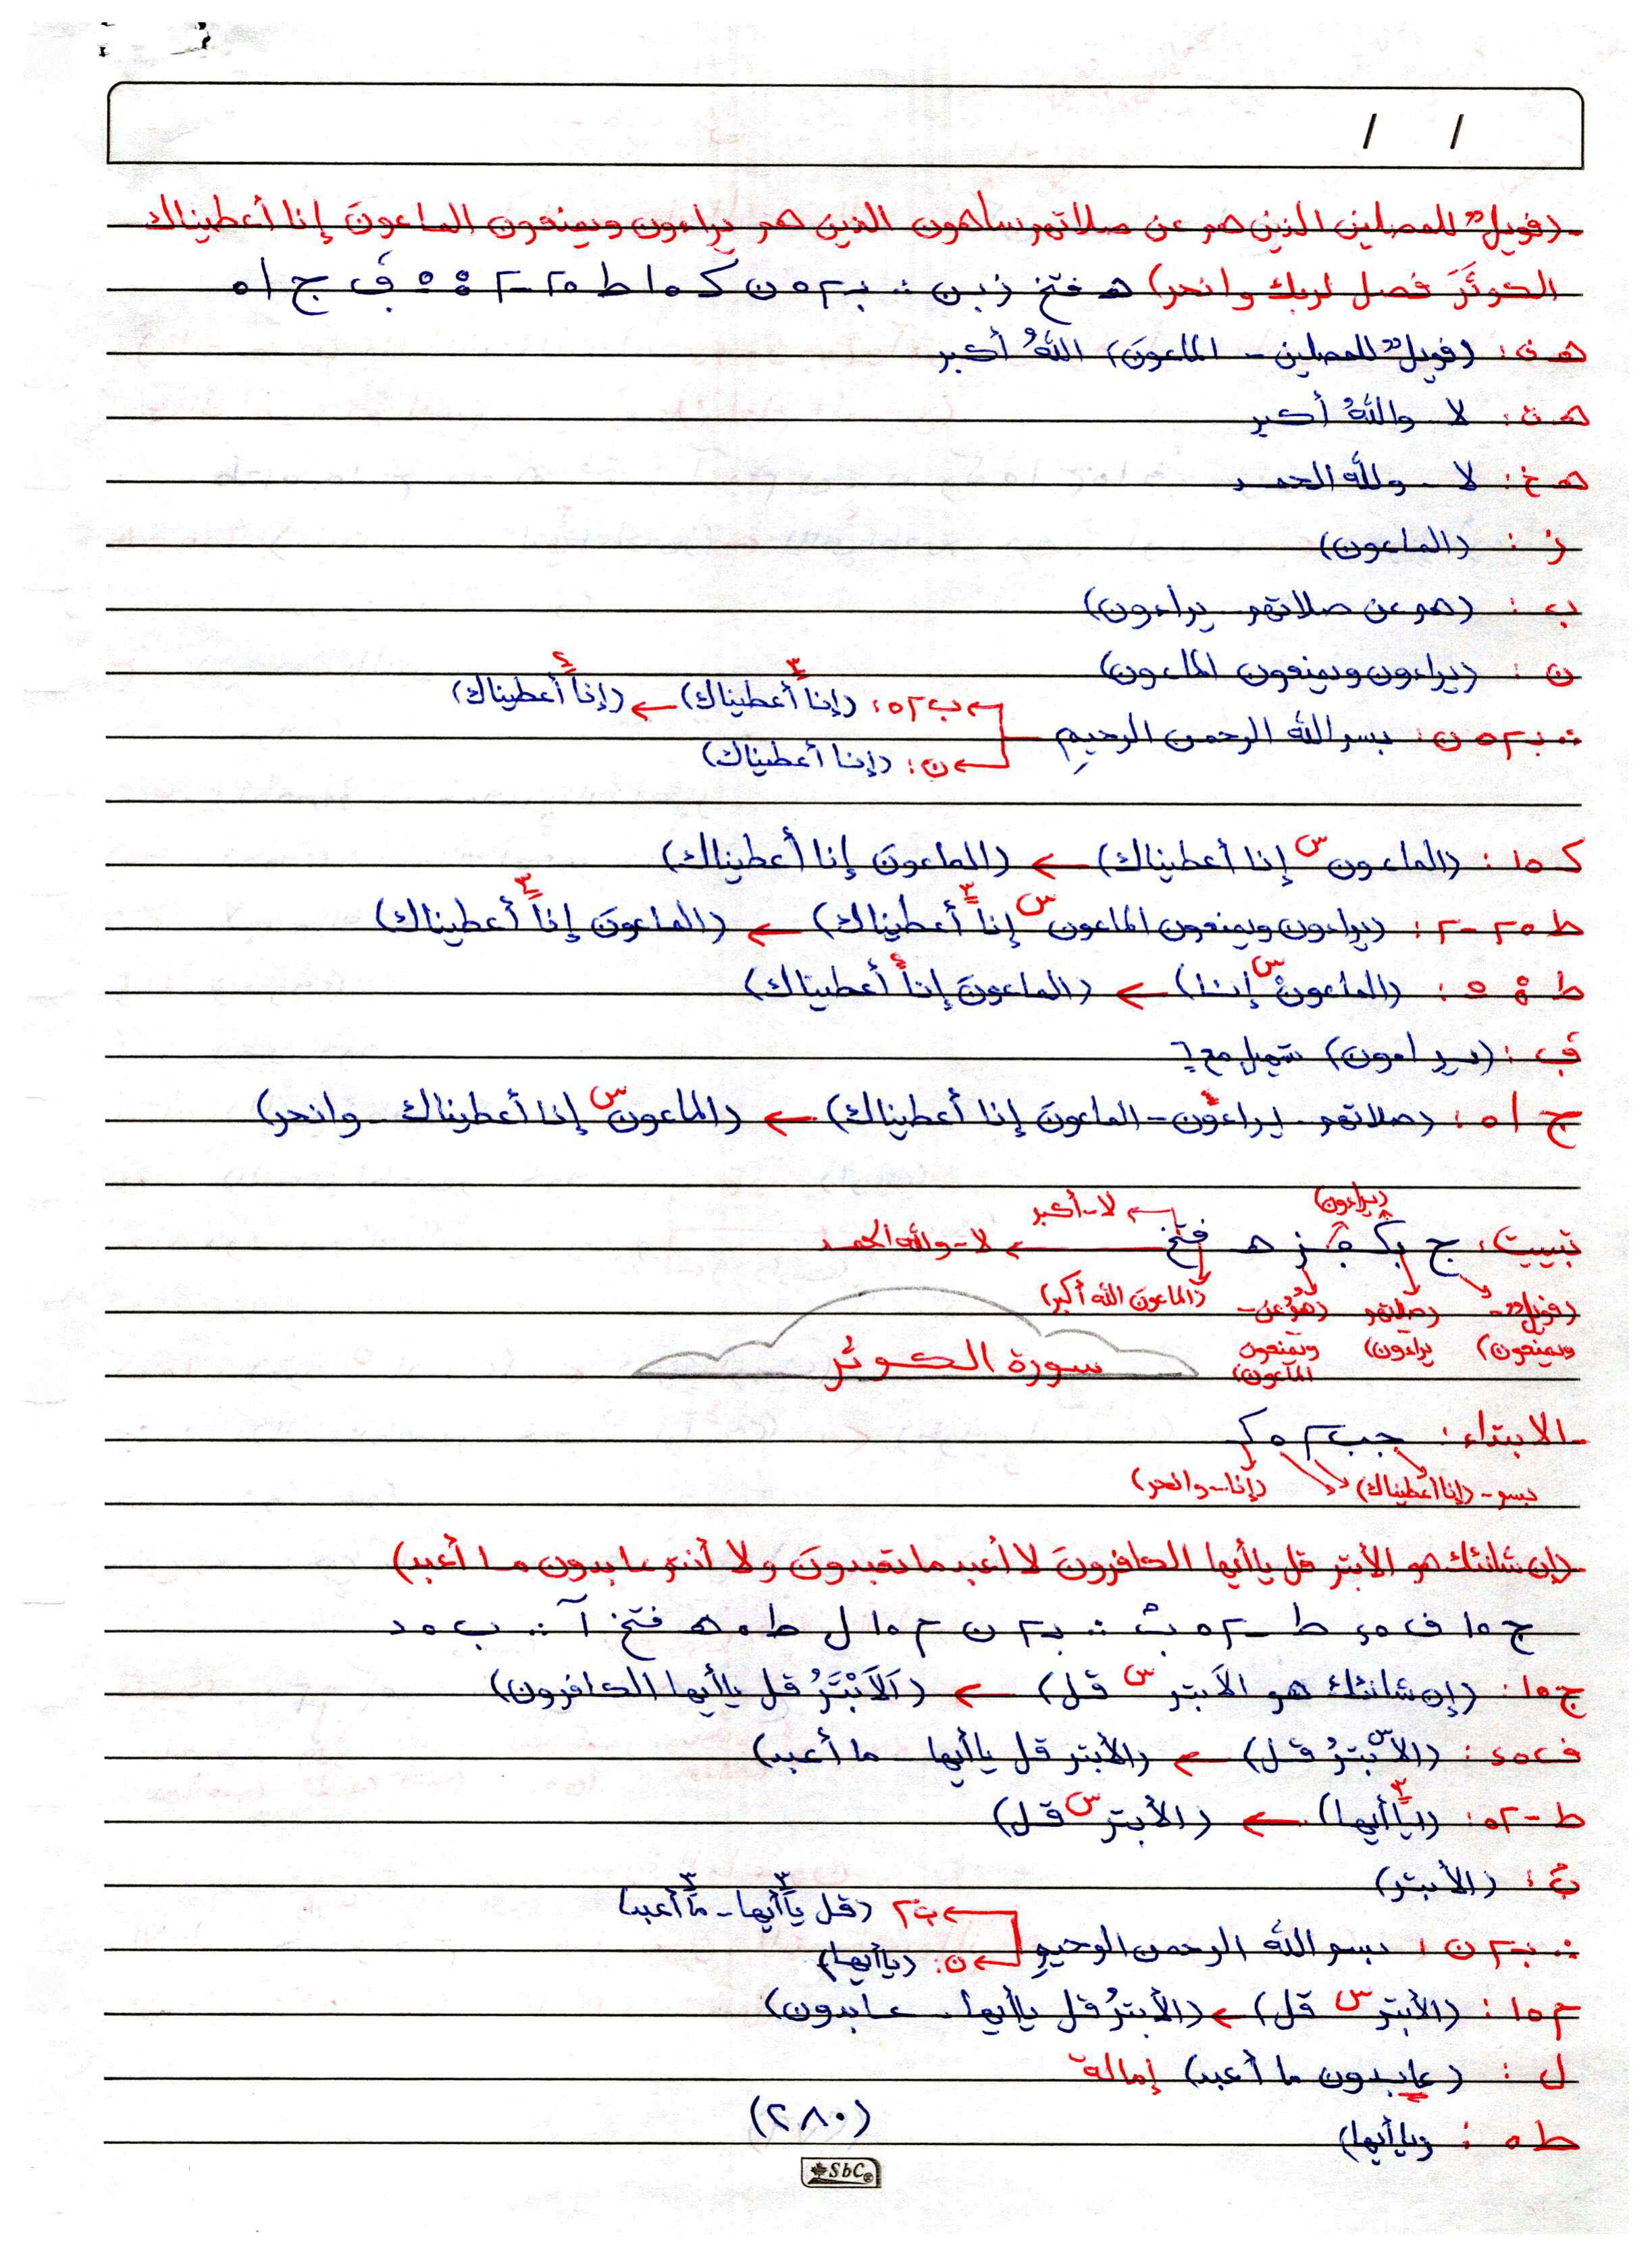 / /
- (فويلٌ للمصلين الذين هم عن صلاتهم ساهون الذين هم يراءون ويمنعون الماعونَ إنا أعطيناك
الكوثَرَ فصل لربك وانحر) هـ فتخ ز ب ن ∴ ب ٢ ٥ ن ك ١٥ ط ٢٥ - ٢ ج ١٥
هـ ف: (فويلٌ للمصلين - الماعونَ) اللهُ أكبر
هـ ت: لا - واللهُ أكبر
هـ خ: لا - ولله الحمد
ز: (الماعون)
ب: (هم عن صلاتهم - يراءون)
ن: (يراءون ويمنعون الماعون)
∴ ب ٢ ٥ ن: بسم الله الرحمن الرحيمِ
ب ٢ ٥: (إنا أعطيناك) ← (إنا أعطيناك)
ن: (إنا أعطيناك)
ك ١٥: (الماعون س إنا أعطيناك) ← (الماعونَ إنا أعطيناك)
ط ٢٥ - ٢: (يراءون ويمنعون الماعون س إنا أعطيناك) ← (الماعونَ إنا أعطيناك)
ط: (الماعون س إنا) ← (الماعونَ إنا أعطيناك)
(يراءون) تسهيل مع ٦
ج ١٥: (صلاتهم - يراءون - الماعونَ إنا أعطيناك) ← (الماعون س إنا أعطيناك - وانحر)
(يراءون) لا - أكبر
تبييت: ج ز هـ فتخ ← لا - ولله الحمد
(فويلٌ - (صلاتهم (هم عن - (الماعونَ الله أكبر)
ويمنعون) يراءون) ويمنعون الماعون)
سورة الكوثر
- الابتداء: جب ٢ ٥ ك
بسم - (إنا أعطيناك) (إنا - وانحر)
(إن شانئك هو الأبتر قل ياأيها الكافرونَ لا أعبد ما تعبدونَ ولا أنتم عابدون ما أعبد)
ج ١٥ ف ٥ ٤ ط - ٢ ٥ ث ∴ ب ٢ ن م ١٥ ل ط ٥ هـ فتخ آ ∴ ب ٥ د
ج ١٥: (إن شانئك هو الأبتر س قل) ← (الَابْتَرُ قل ياأيها الكافرون)
ف ٥ ٤: (الأس بترُ قل) ← (الأبتر قل ياأيها - ما أعبد)
ط - ٢ ٥: (ياأيها) ← (الأبتر س قل)
ث: (الأبتر)
∴ ب ٢ ن: بسم الله الرحمن الرحيمِ
ب ٢ (قل ياأيها - ما أعبد)
ن: (ياأيها)
م ١٥: (الأبتر س قل) ← (الأبترُ قل ياأيها - عابدون)
ل: (عابدون ما أعبد) إمالة
(٢٨٠)
ط ٥: (ياأيها)
SbC